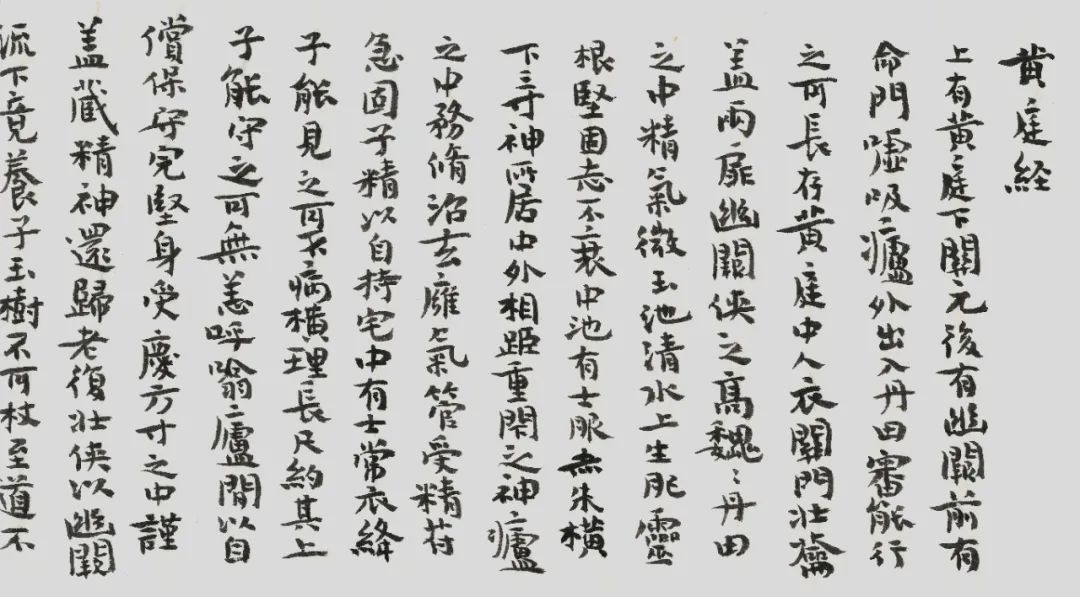 黄庭经
上有黄庭下關元後有幽闕前有
命門噓吸廬外出入丹田審能行
之可長存黄庭中人衣關門壯籥
盖兩扉幽關俠之高巍〻丹田
之中精氣微玉池清水上生肥靈
根堅固志不衰中池有士服赤朱橫
下三寸神所居中外相距重閉之神廬
之中務脩治玄廱氣管受精苻
急固子精以自持宅中有士常衣絳
子能見之可不病橫理長尺約其上
子能守之可無恙呼噏廬間以自
償保守完堅身受慶方寸之中謹
盖藏精神還歸老復壯俠以幽闕
流下竟養子玉樹不可杖至道不